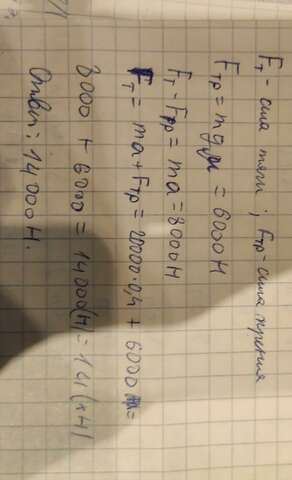 Fт - сила тяги ; Fтр - сила трения
Fтр = mgμ = 6000 Н
Fт - Fтр = ma = 8000 Н
Fт = ma + Fтр = 20000·0,4 + 6000 =
8000 + 6000 = 14000 (Н) = 14 (кН)
Ответ: 14000 Н.